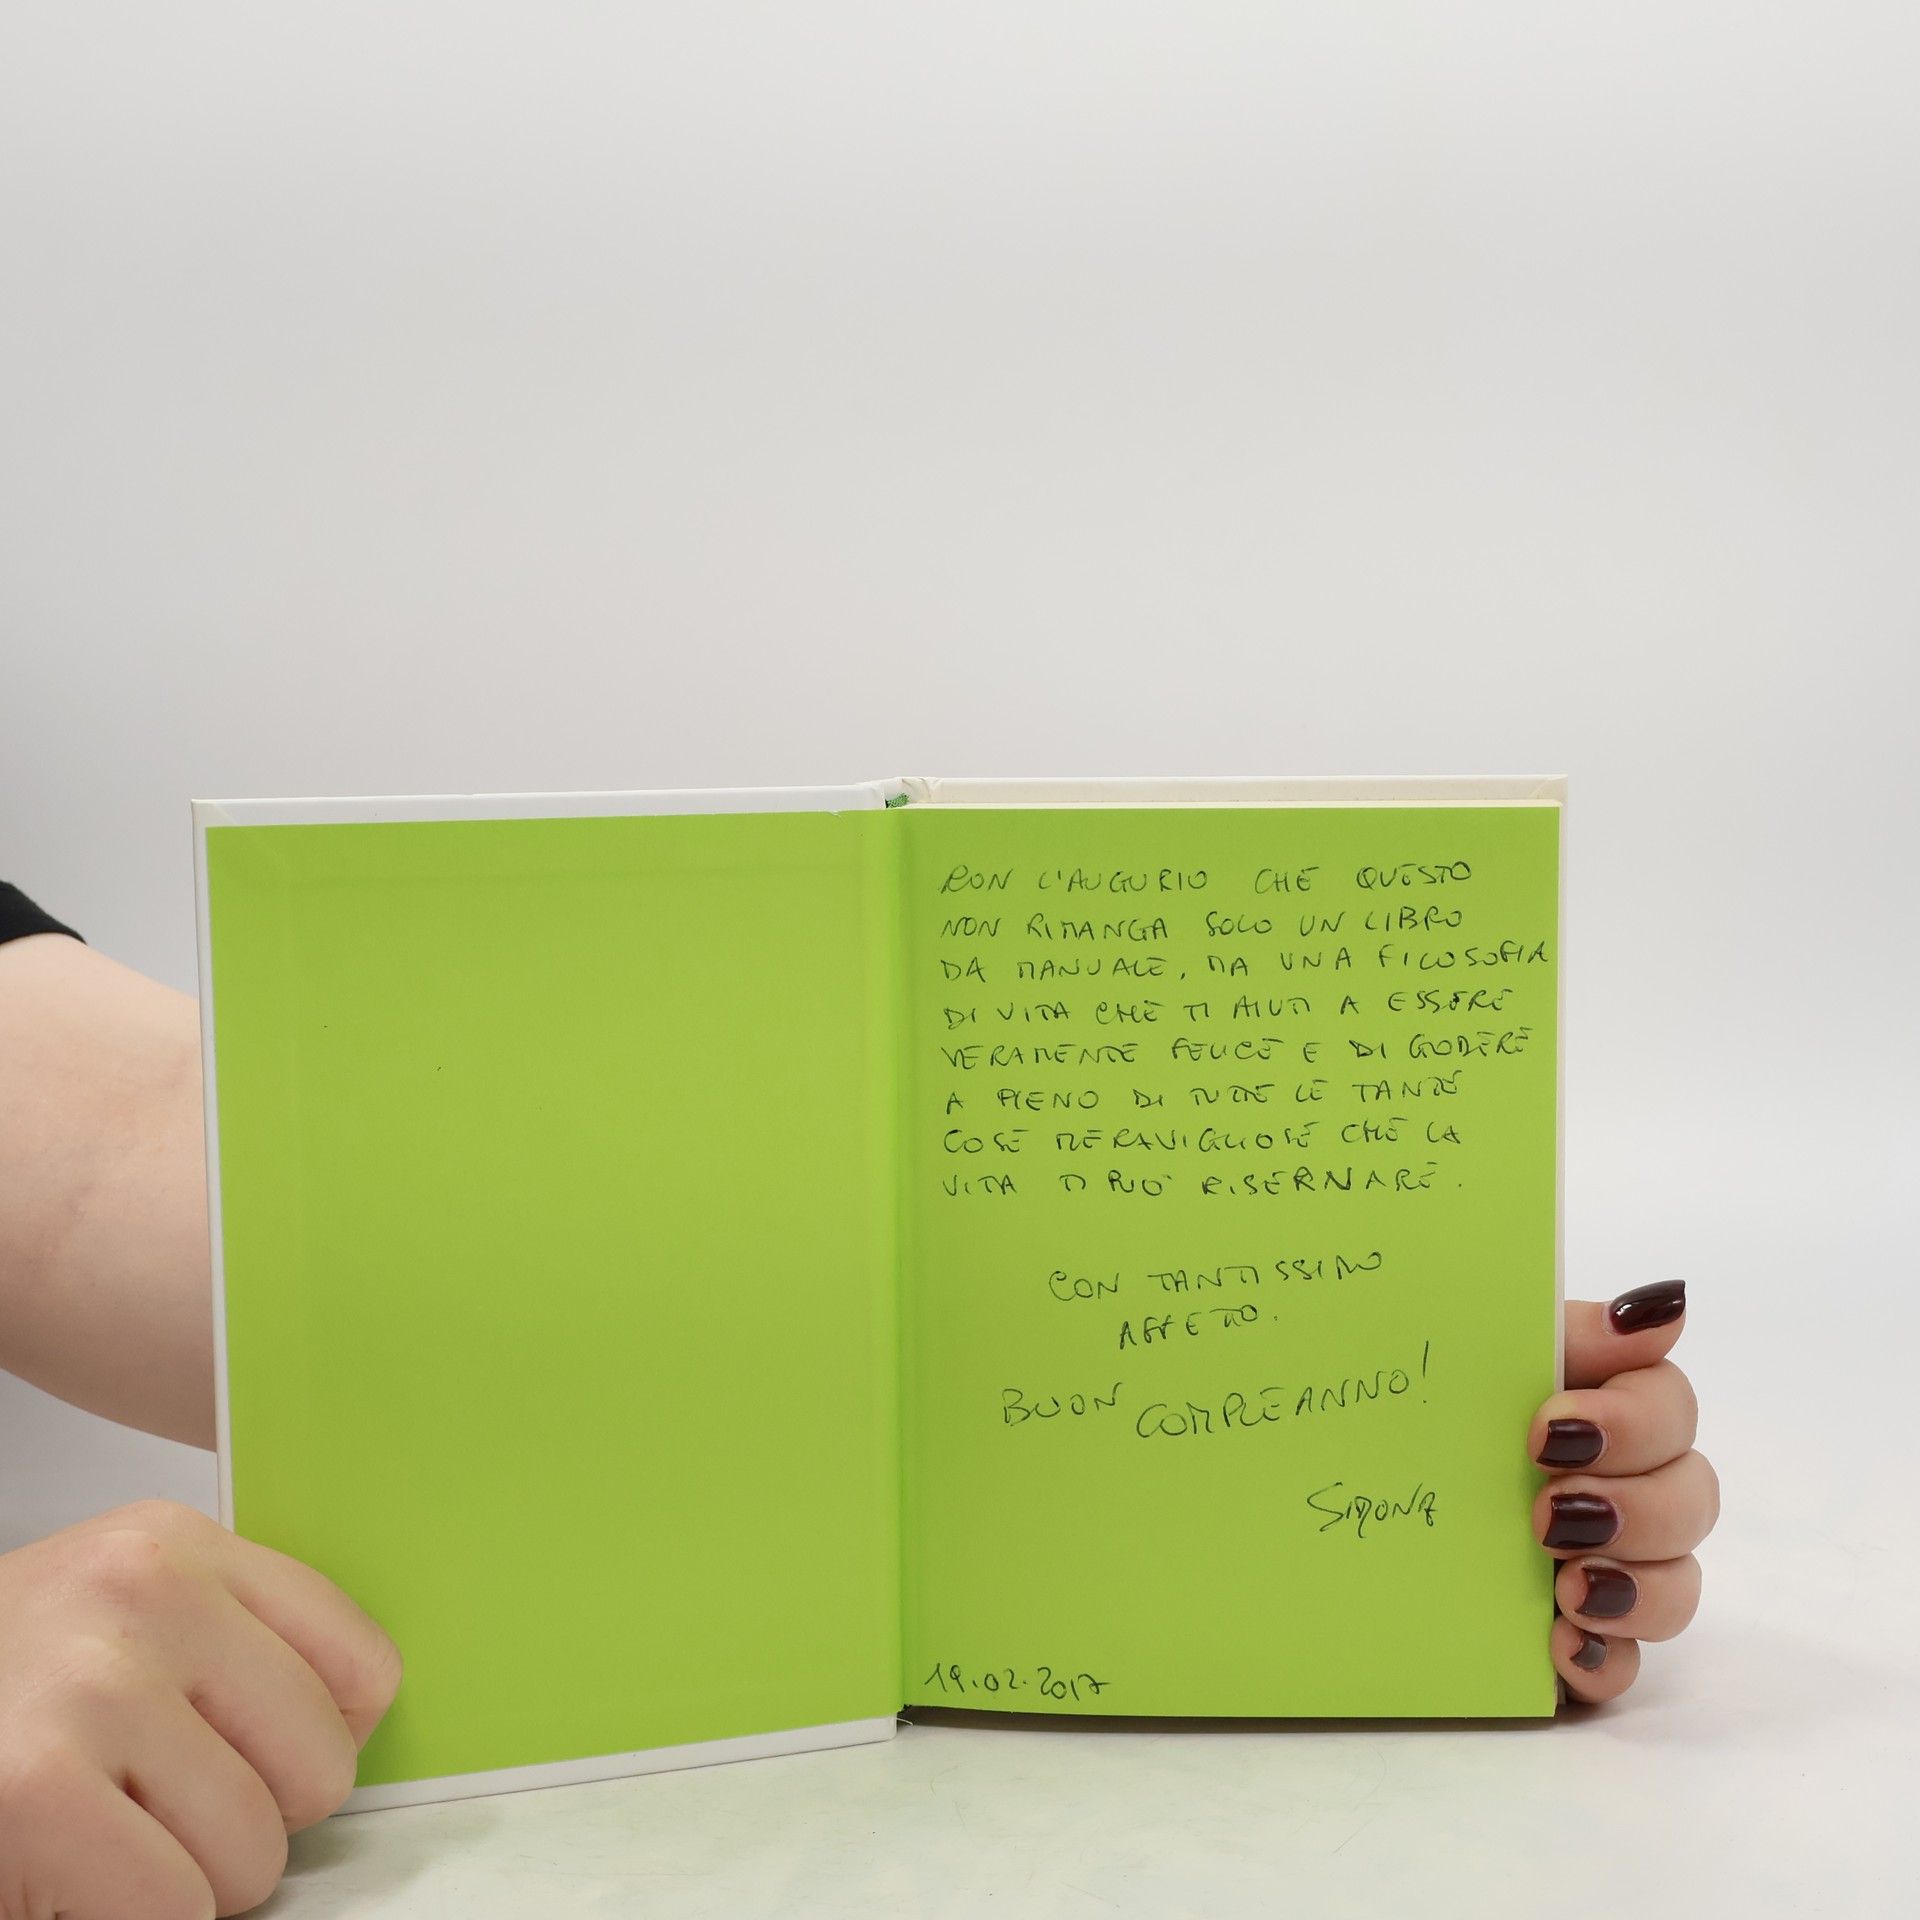 CON L'AUGURIO CHE QUESTO
NON RIMANGA SOLO UN LIBRO
DA MANUALE, MA UNA FILOSOFIA
DI VITA CHE TI AIUTI A ESSERE
VERAMENTE FELICE E DI GODERE
A PIENO DI TUTTE LE TANTE
COSE MERAVIGLIOSE CHE LA
VITA TI PUO' RISERNARE.
CON TANTISSIMO
AFFETTO.
BUON COMPLEANNO!
SIMONA
19.02.2017